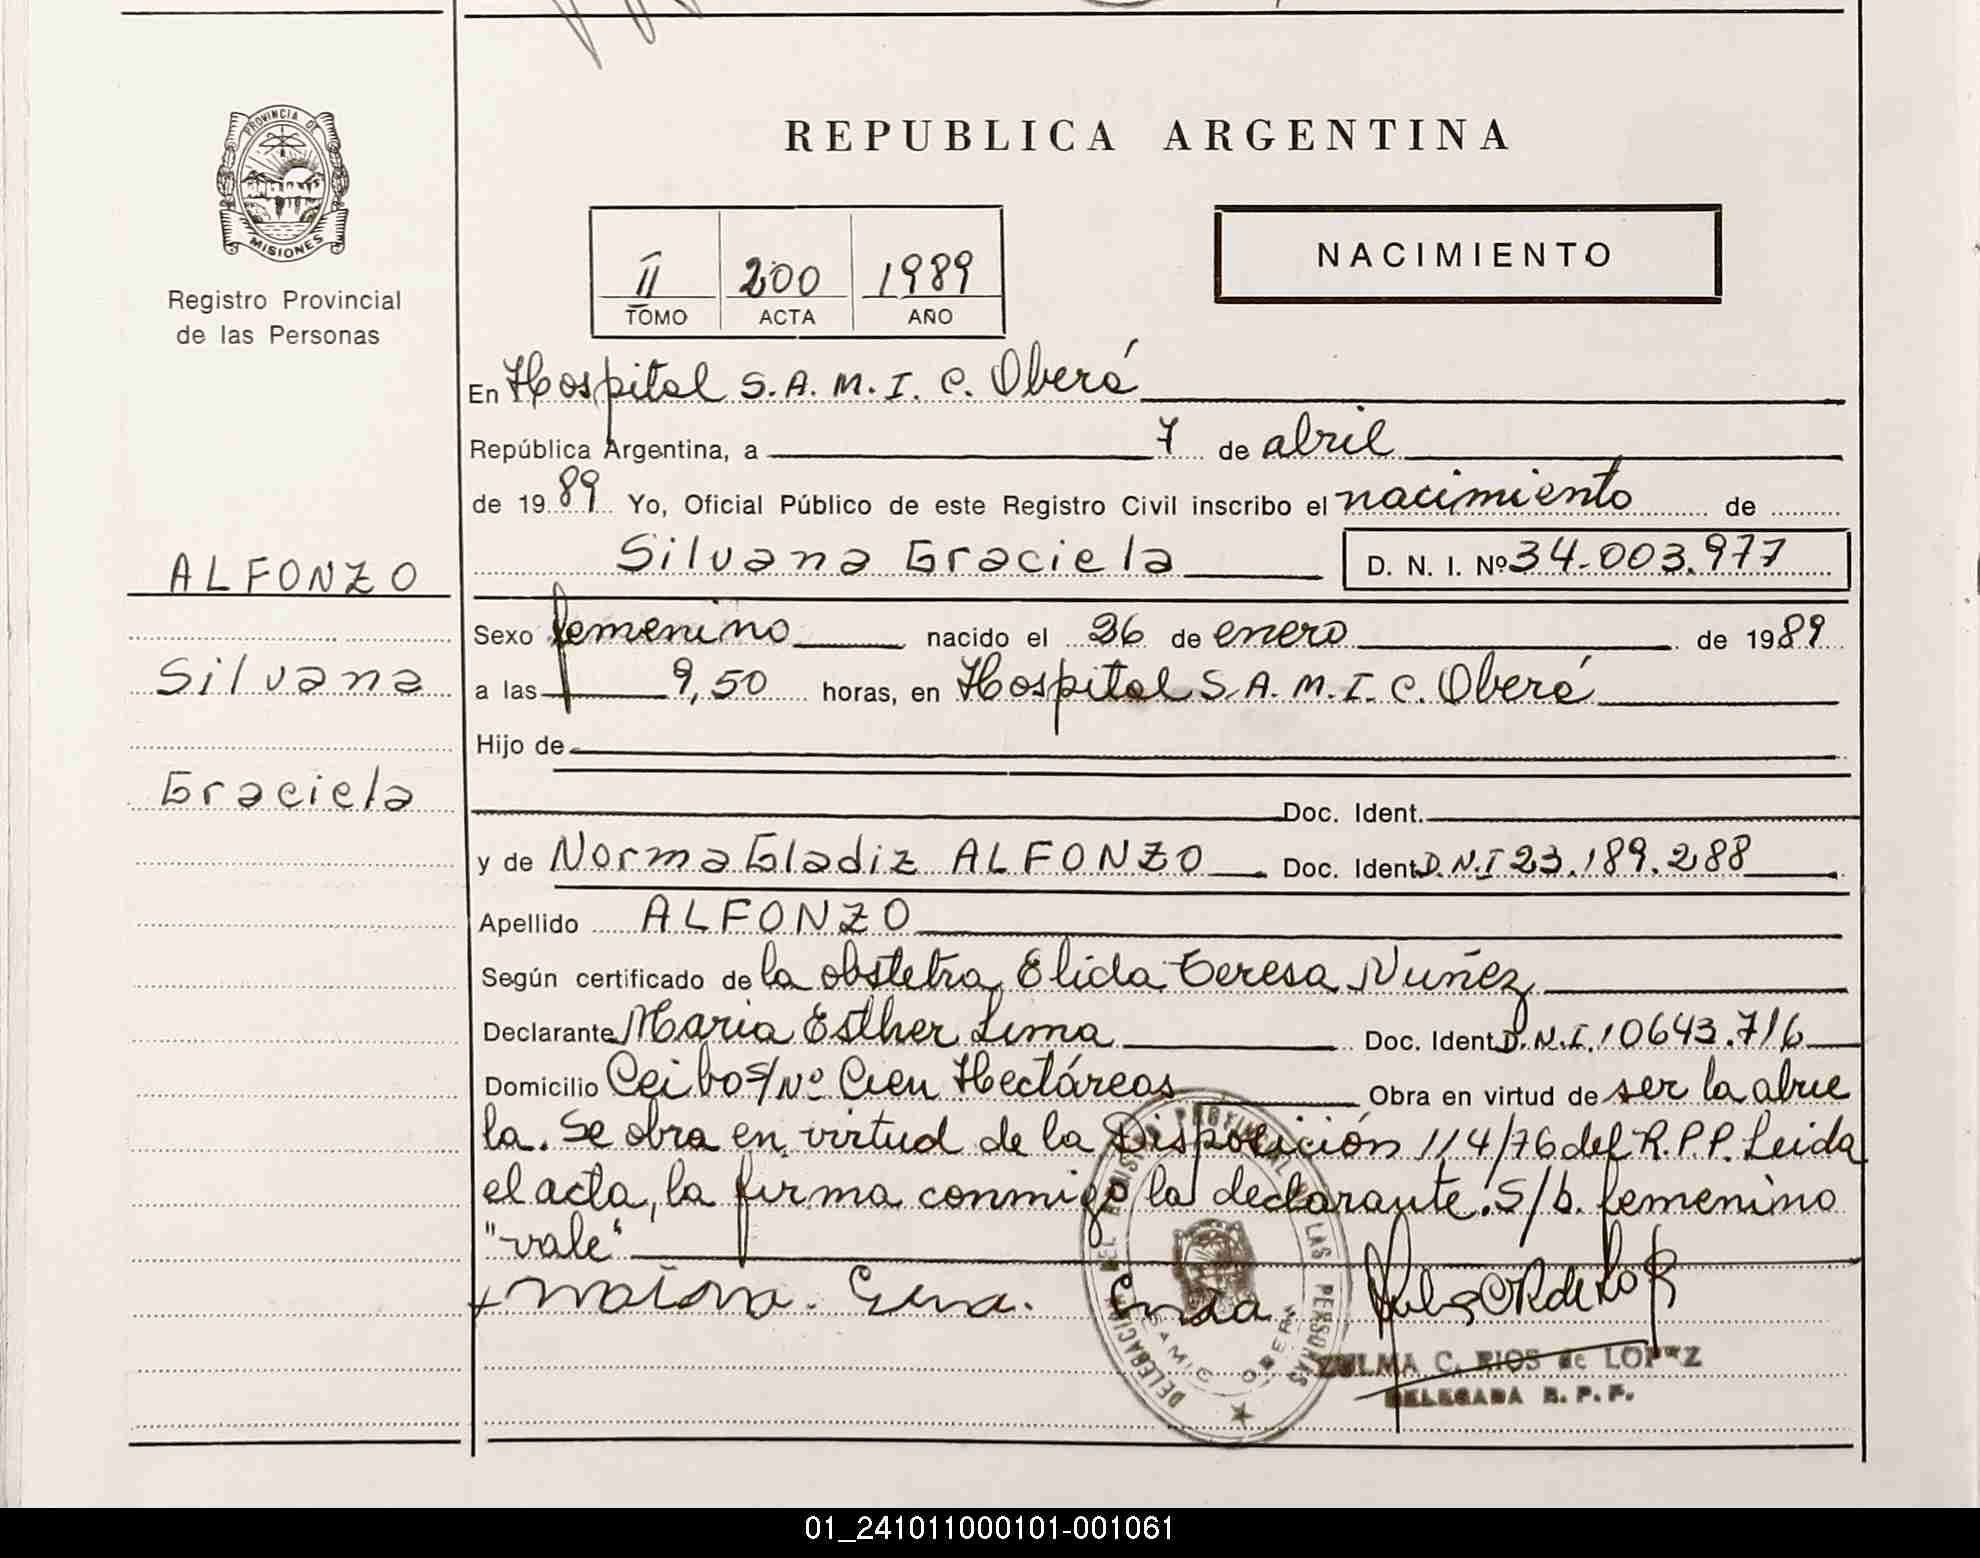 REPUBLICA ARGENTINA
PROVINCIA DE
MISIONES
Registro Provincial
de las Personas
NACIMIENTO
II 200 1989
TOMO ACTA AÑO
En Hospital S.A.M.I.C. Oberá
República Argentina, a 7 de abril
de 1989 Yo, Oficial Público de este Registro Civil inscribo el nacimiento de
Silvana Graciela D. N. I. Nº 34.003.977
ALFONZO
Silvana
Graciela
Sexo femenino nacido el 26 de enero de 1989
a las 9,50 horas, en Hospital S.A.M.I.C. Oberá
Hijo de
Doc. Ident.
y de Norma Gladiz ALFONZO Doc. Ident. D.N.I 23.189.288
Apellido ALFONZO
Según certificado de la obstetra Elida Teresa Nuñez
Declarante Maria Esther Lima Doc. Ident. D.N.I. 10643.716
Domicilio Ceibo s/Nº Cien Hectáreas Obra en virtud de ser la abue
la. Se obra en virtud de la Disposición 114/76 del R.P.P. Leida
el acta, la firma conmigo la declarante. S/b. femenino
"vale"
DELEGACION DEL REGISTRO PROVINCIAL DE LAS PERSONAS
SAMIC OBERA
ZULMA C. RIOS de LOPEZ
DELEGADA R. P. P.
01_241011000101-001061